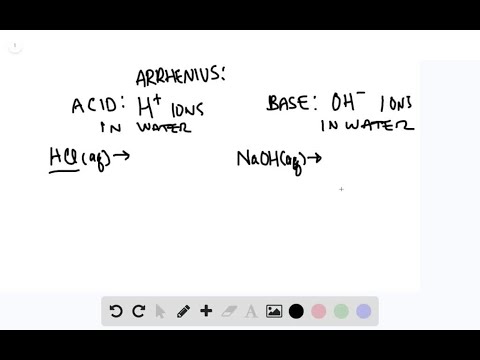 ARRHENIUS:
ACID: H⁺ IONS
IN WATER
BASE: OH⁻ IONS
IN WATER
HCl(aq)→
NaOH(aq)→
A